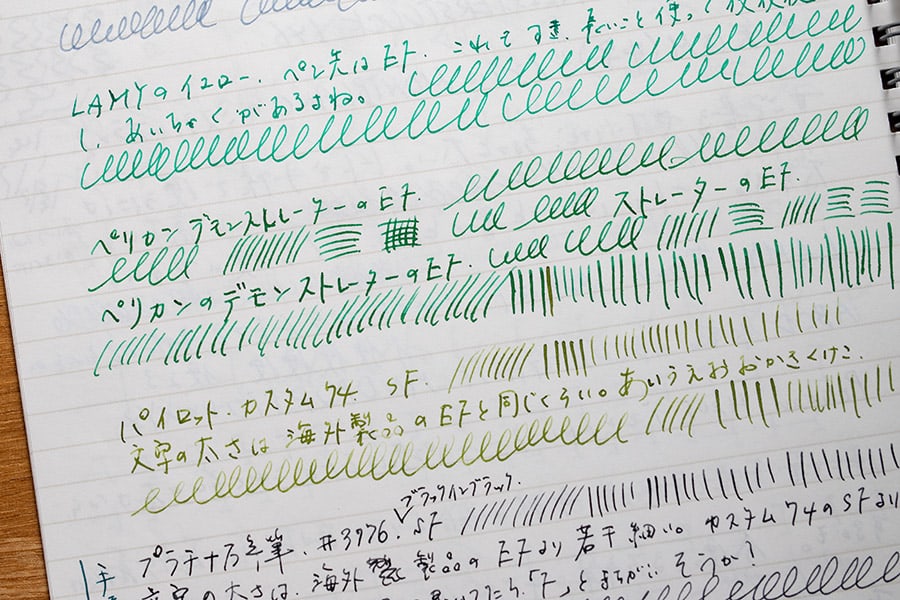 LAMYのイエロー、ペン先はEF. これも 長いこと使って
し、あいちゃくがあるよね。
ペリカン デモンストレーターのEF ストレーターのEF.
ペリカンのデモンストレーターのEF.
パイロット. カスタム74. SF.
文字の太さは 海外製品のEFと同じくらい。あいうえおおかきくけこ
ブラックインブラック.
プラチナ万年筆. #3776. SF
文字の太さは、海外 製品のEFより 若干細い。カスタム74のSFより
たら、「F」とまちがいそうか?